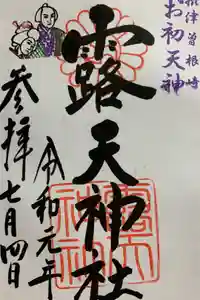 摂津 曽根崎
お初天神
露天神社
令和元年
七月四日
参拝